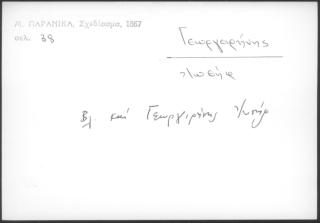 Μ. ΠΑΡΑΝΙΚΑ, Σχεδίασμα, 1867
σελ. 38
Γεωργαρήνης
Ιωσήφ
Βλ και Γεωργιρήνης Ιωσήφ